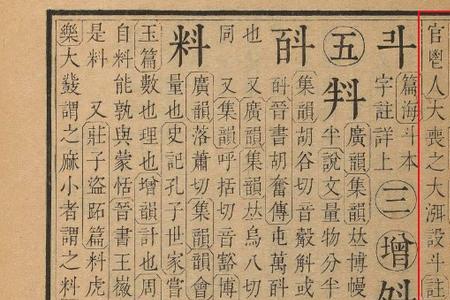 官鬯人大喪之大渳設斗註
斗
篇海斗本
字註詳上
三
增
五
㪵
廣韻集韻𠀤博幔
半說文量物分半
㪶
集韻胡谷切音觳斛或
㪶晉書胡奮傳屯萬斛
也 又廣韻集韻𠀤烏八切
同 又集韻呼括切音豁博
料
廣韻落蕭切集韻韻會
量也史記孔子世家嘗
玉篇數也理也增韻計也周
自料能孰與蒙恬晉書王徽
是料 又莊子盜跖篇料虎
樂大鼗謂之麻小者謂之料